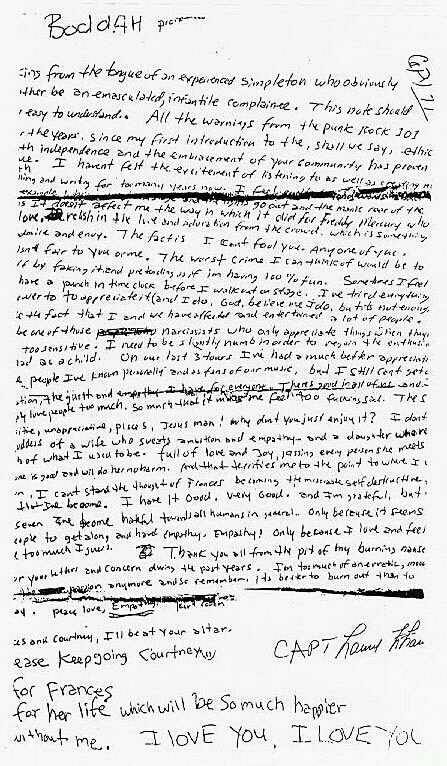 BoddAH
from the tongue of an experienced simpleton who obviously
be an emasculated, infantile complainee. This note should
easy to understand. All the warnings from the punk rock 101
the years. Since my first introduction to the, shall we say, ethic
independence and the embracement of your community has proven
I havent felt the excitement of listening to as well as creating
and writing for too many years now. I feel
go out and the manic roar of the
is It doesnt affect me the way in which it did for Freddy Mercury who
love, relish in the love and adoration from the crowd. which is something
admire and envy. The fact is I Cant fool you. Any one of you.
isnt fair to you or me. The worst crime I can think of would be to
by faking it and pretending as if im having 100% fun. Sometimes I feel
have a punch in time clock before I walk out on stage. I've tried everything
power to appreciate it (and I do. God, believe me I do, but its not enough
the fact that I and we have affected and entertained a lot of people.
be one of those narcissists who only appreciate things when they
too sensitive. I need to be slightly numb in order to regain the enthusia
had as a child. On our last 3 tours I've had a much better appreciati
people I've known personally and as fans of our music, but I still cant get
the guilt and empathy I have for everyone. Theres good in all of us and
love people too much. So much that it makes me feel too fucking sad. The S
unappreciative, pisces, Jesus man! Why dont you just enjoy it? I dont
goddess of a wife who sweats ambition and empathy and a daughter who re
of what I used to be. full of love and Joy, kissing every person she meets
one is good and will do her no harm. And that terrifies me to the point to where I
I cant stand the thought of Frances becoming the miserable self destructive,
become. I have it Good. Very Good. and I'm grateful, but
seven become hateful towards all humans in general. Only because it seems
people to get along and have empathy. Empathy! Only because I love and feel
too much I guess. Thank you all from the pit of my burning nause
your letters and concern during the past years. I'm too much of an erratic, moo
passion anymore and so remember, its better to burn out than to
peace love, Empathy. kurt cobain
and Courtney, I'll be at your altar.
Keep going Courtney
CAPT
for Frances
for her life which will be so much happier
without me. I LOVE YOU, I LOVE YOU